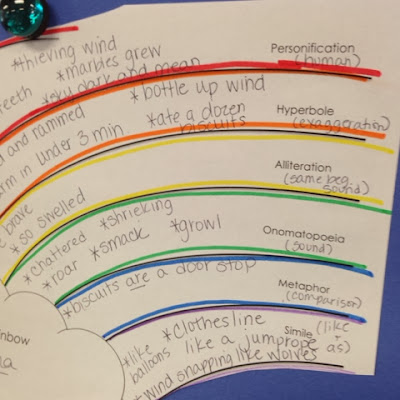 *thieving wind
*marbles grew
Personification
(human)
teeth *sky dark and mean
*bottle up wind
Hyperbole
(exaggeration)
and rammed
*ate a dozen
biscuits
in under 3 min
Alliteration
(same beg.
sound)
brave
*so swelled
*shrieking
*chattered
*growl
Onomatopoeia
(sound)
*roar *smack
*biscuits are a door stop
Metaphor
(comparison)
*Clothesline
like a jumprope
Simile (like
+
as)
*like
balloons
*wind snapping like wolves